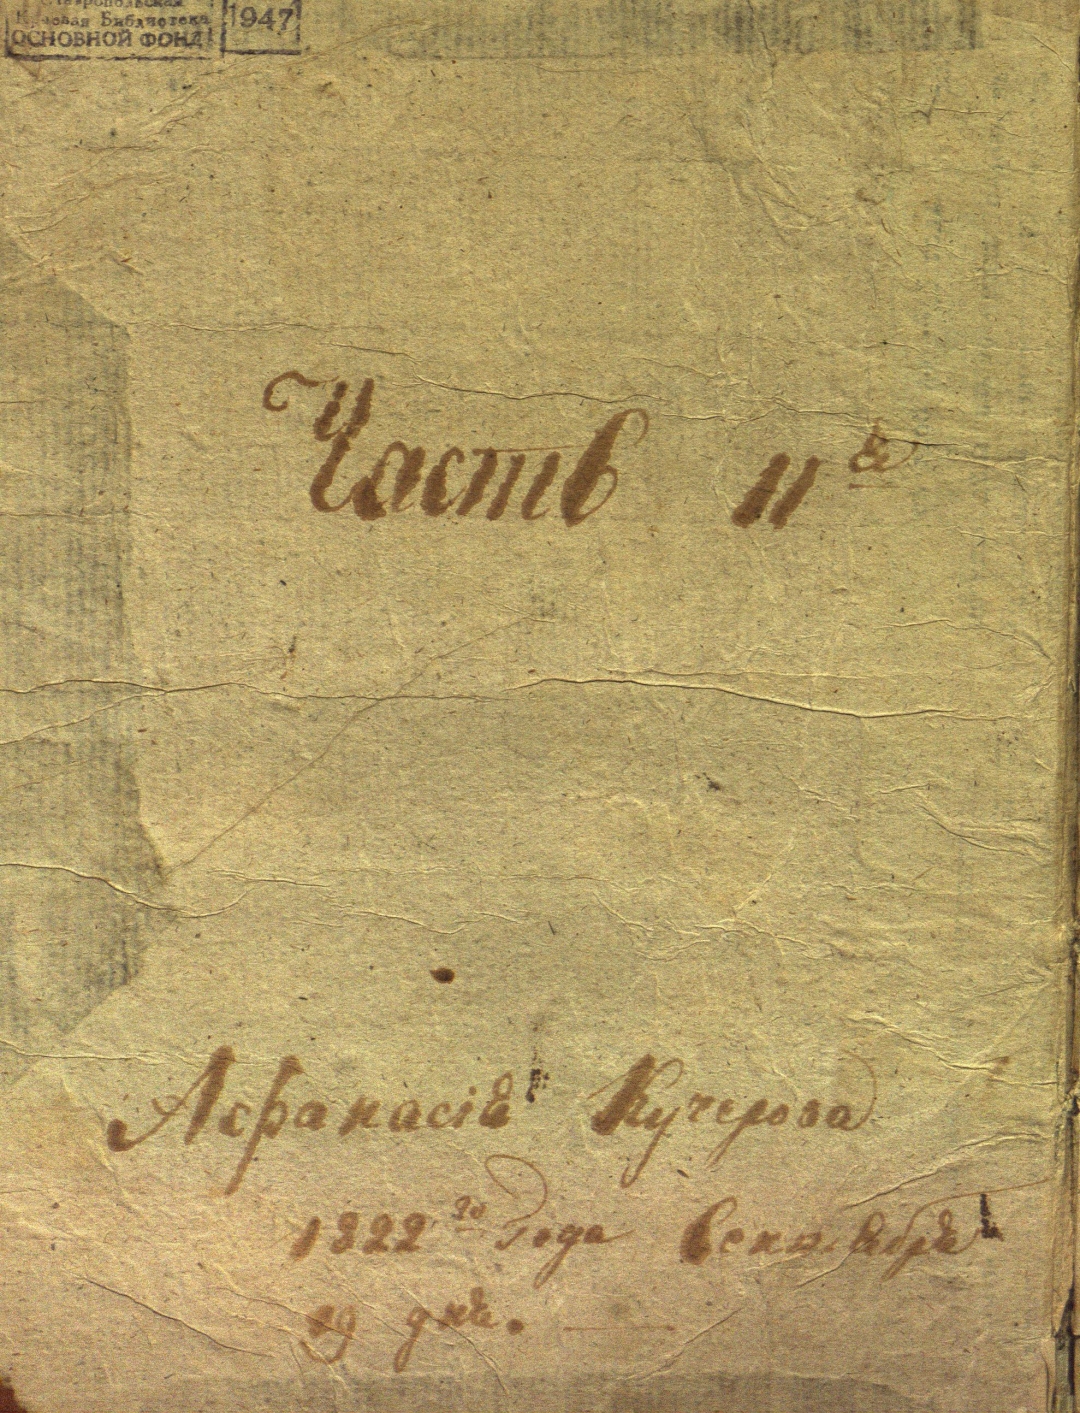 Ставропольская
Краевая Библиотека
ОСНОВНОЙ ФОНД
1947
Часть II я
Афанасія Кучерова
1822 го Года Сентября
19 дня.